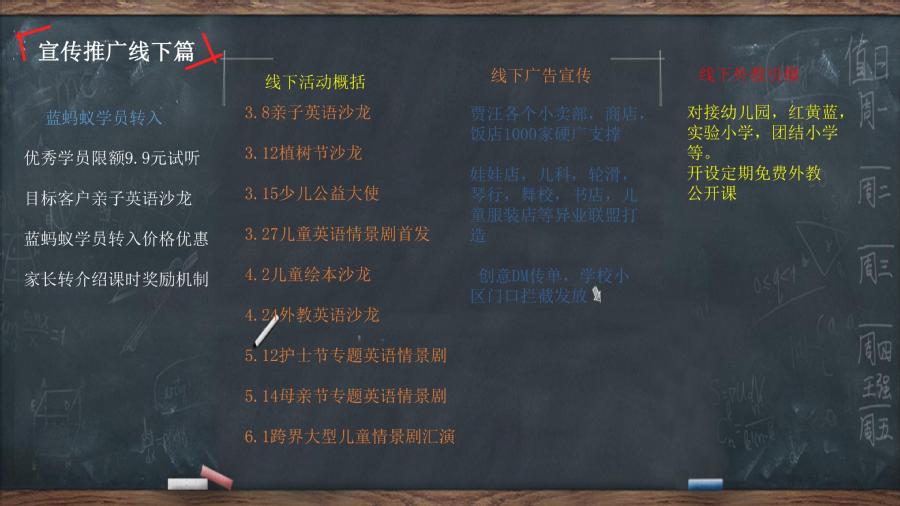 宣传推广线下篇
蓝蚂蚁学员转入
优秀学员限额9.9元试听
目标客户亲子英语沙龙
蓝蚂蚁学员转入价格优惠
家长转介绍课时奖励机制
线下活动概括
3.8亲子英语沙龙
3.12植树节沙龙
3.15少儿公益大使
3.27儿童英语情景剧首发
4.2儿童绘本沙龙
4.24外教英语沙龙
5.12护士节专题英语情景剧
5.14母亲节专题英语情景剧
6.1跨界大型儿童情景剧汇演
线下广告宣传
贾汪各个小卖部，商店，
饭店1000家硬广支撑
娃娃店，儿科，轮滑，
琴行，舞校，书店，儿
童服装店等异业联盟打
造
创意DM传单，学校小
区门口拦截发放
线下外教引爆
对接幼儿园，红黄蓝，
实验小学，团结小学
等。
开设定期免费外教
公开课
值日
周一
周二
周三
周四
王强
周五